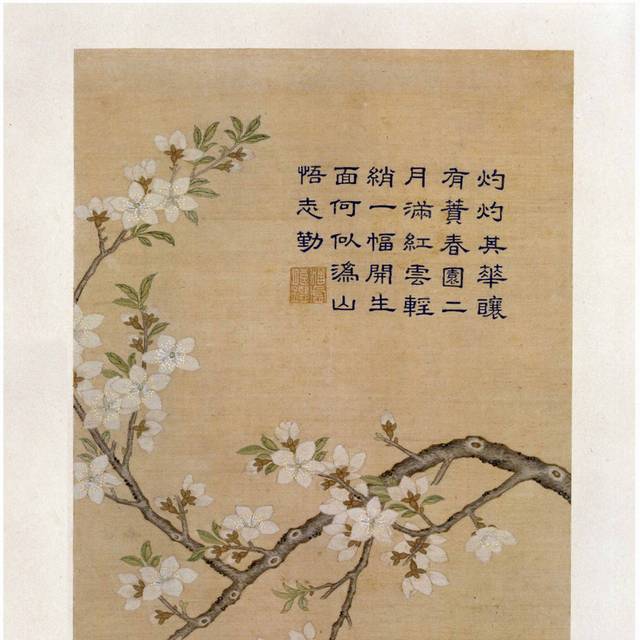 灼灼其華釀
有蕡春園二
月滿紅雲輕
綃一幅開生
面何似潙山
悟志勤